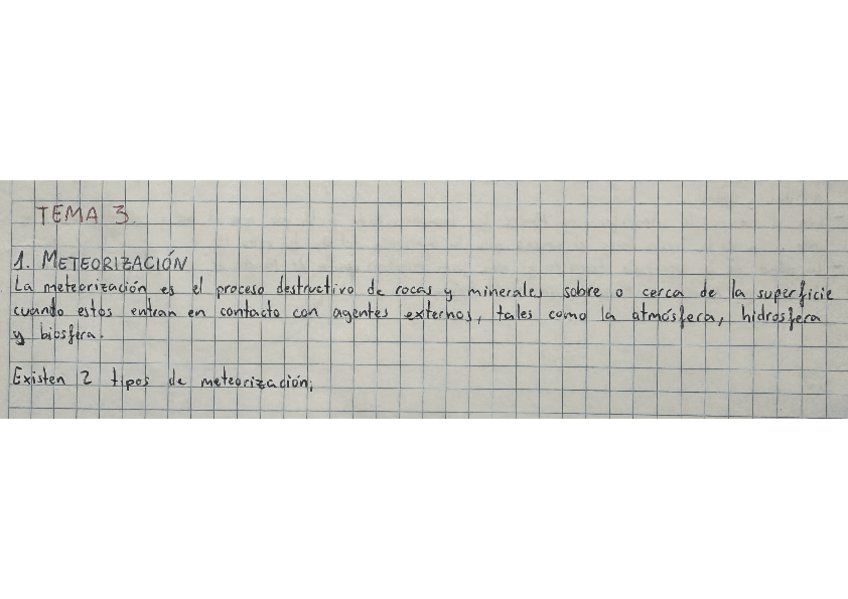 TEMA 3.
1. METEORIZACIÓN
La meteorización es el proceso destructivo de rocas y minerales sobre o cerca de la superficie
cuando estos entran en contacto con agentes externos, tales como la atmósfera, hidrosfera
y biosfera.
Existen 2 tipos de meteorización;